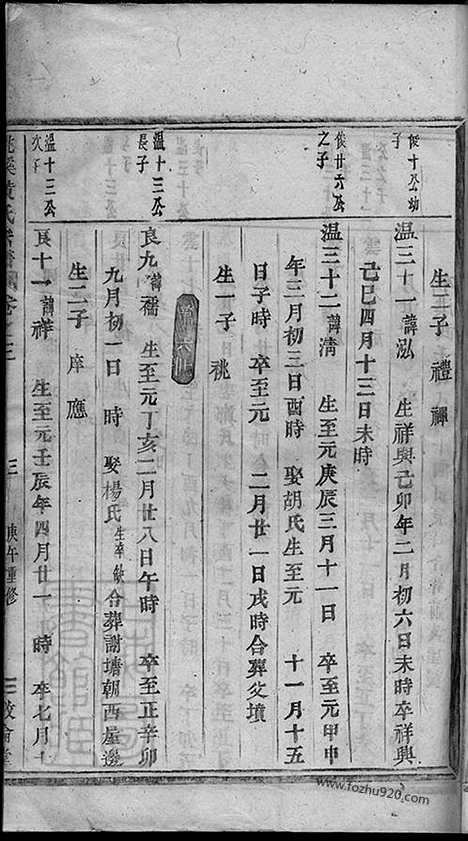 生二子 禮 禪
俊十公幼子
溫三十一諱泓 生祥興己卯年二月初六日未時卒祥興
己巳四月十三日未時
俊廿六公之子
溫三十二諱淸 生至元庚辰三月十一日 卒至元甲申
年三月初三日酉時 娶胡氏生至元 十一月十五
日子時 卒至元 二月廿一日戌時合葬父墳
生一子 祧
溫十三公長子
良九諱禑 生至元丁亥二月廿八日午時 卒至正辛卯
九月初一日 時 娶楊氏生卒缺合葬謝塘朝西屋邊
生二子 庠 應
溫十三公次子
良十一諱祥 生至元壬辰年四月廿一 時 卒七月十
黃氏
三
庚午重修
www.fozhu920.com